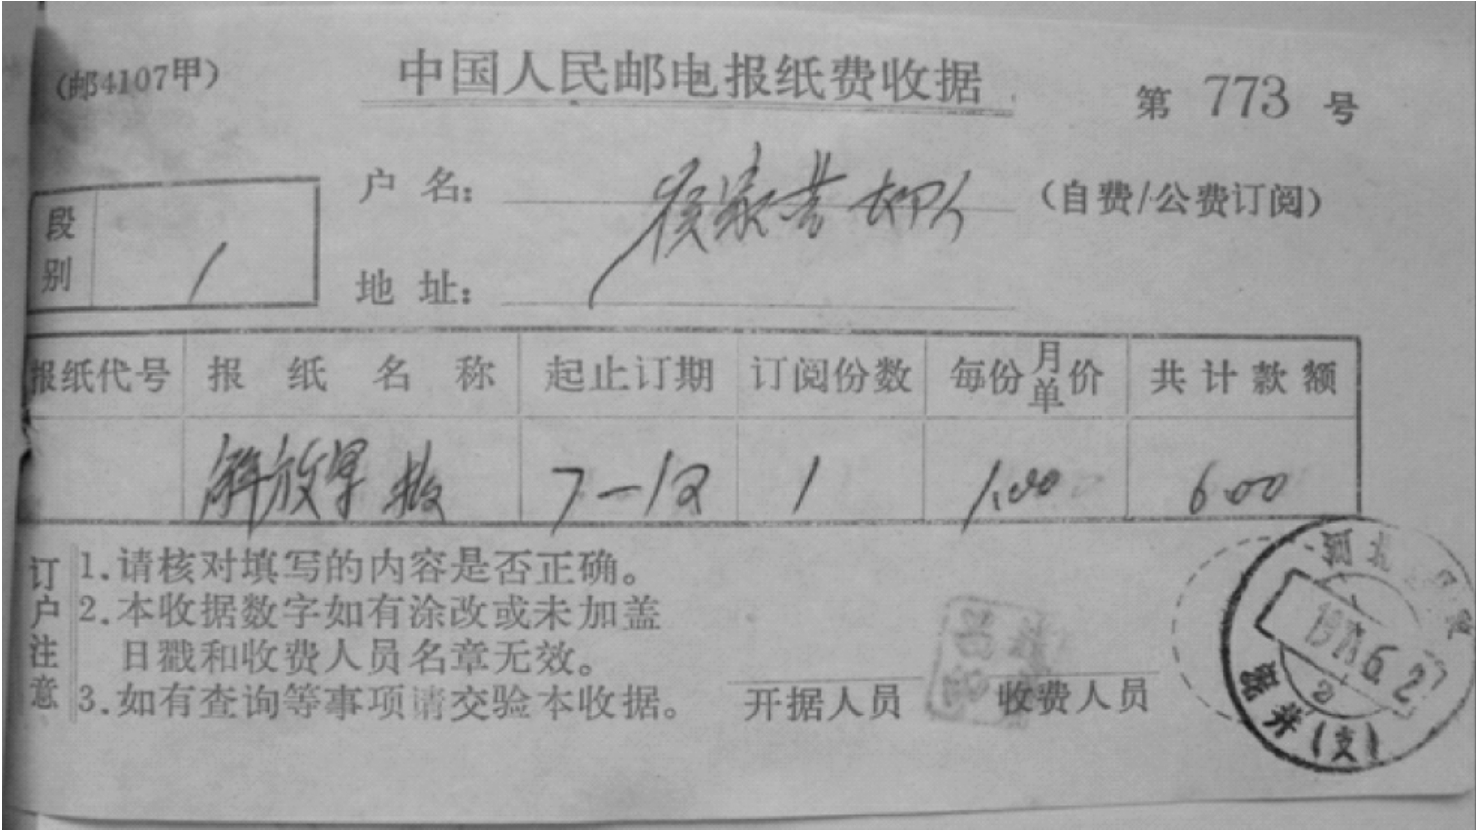 (邮4107甲)
中国人民邮电报纸费收据
第 773 号
段别 1
户名: 侯家营大队 (自费/公费订阅)
地址:
报纸代号 报纸名称 起止订期 订阅份数 每份月单价 共计款额
解放军报 7—12 1 1.00 6.00
订户注意
1.请核对填写的内容是否正确。
2.本收据数字如有涂改或未加盖
日戳和收费人员名章无效。
3.如有查询等事项请交验本收据。
开据人员 收费人员
河北
6.27
(支)